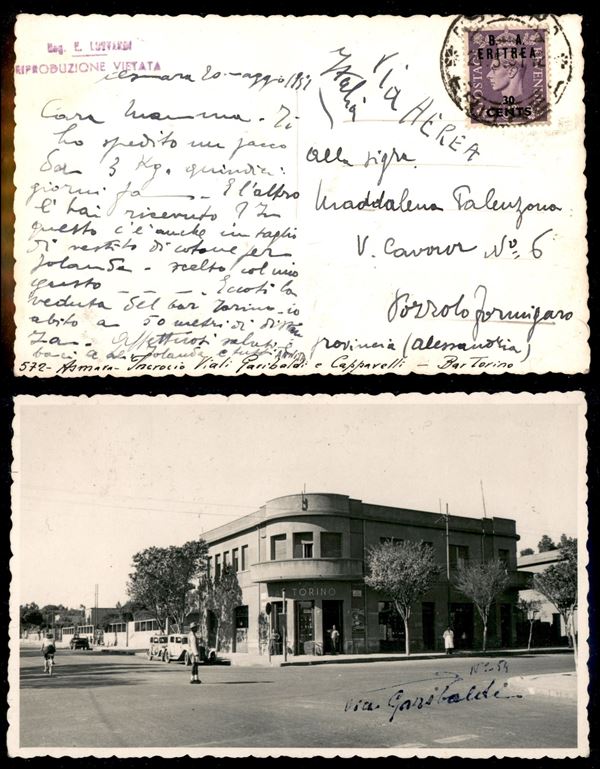 Rag. E. LUSVARDI
RIPRODUZIONE VIETATA
Asmara 20 maggio 1951
Cara Mamma - Ti
ho spedito un pacco
da 3 Kg. quindici
giorni fa — E l'altro
l'hai ricevuto? In
questo c'è anche un taglio
di vestito di cotone per
Jolanda - scelto col mio
gusto — Eccoti la
veduta del bar Torino - io
abito a 50 metri di distan
za - Affettuosi saluti e
baci a te Jolanda e tutti
Via AEREA
(Italia)
B. A.
ERITREA
POSTAGE
REVENUE
30
CENTS
alla Sigra
Maddalena Talenzona
V. Cavour No. 6
Pozzolo Formigaro
provincia (Alessandria)
572 - Asmara - Incrocio Viali Garibaldi e Cappavelli - Bar Torino
TORINO
Via Garibaldi